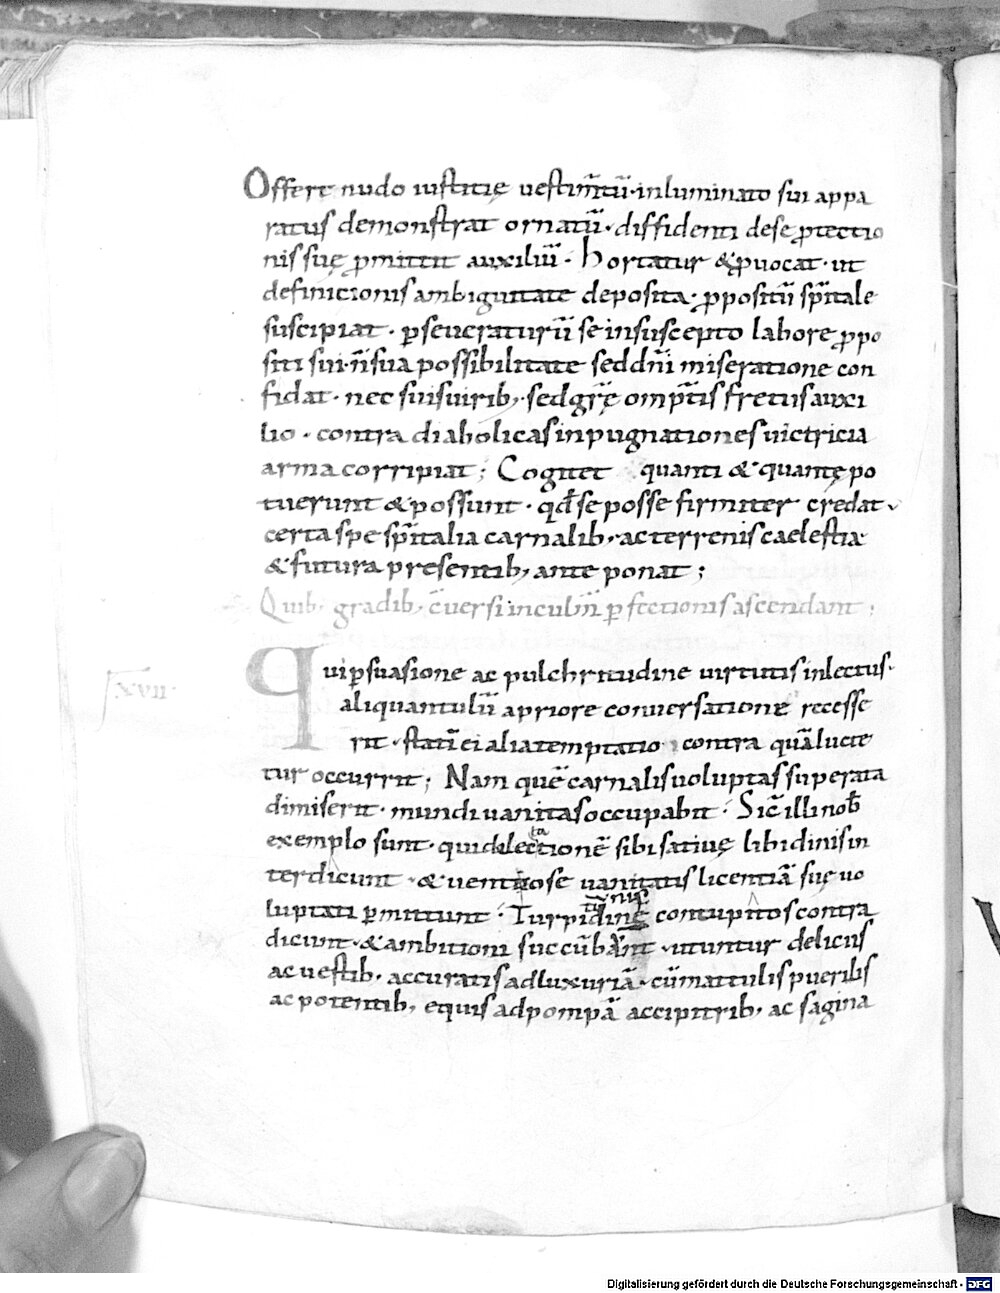 Offert nudo iustitię uestim̅tu̅· inluminato sui appa
ratus demonstrat ornatu̅· diffidenti de se ꝓtectio
nis suę ꝓmittit auxiliu̅· hortatur & ꝓuocat· ut
definitionis ambiguitate deposita· ꝓpositu̅ sp̅itale
suscipiat· ꝑseueraturu̅ se in suscepto labore ꝓpo
siti sui· n̅ sua possibilitate sed dn̅i miseratione con
fidat· nec suis uirib; sed gr̅ę omp̅tis fretus auxi
lio· contra diabolicas inpugnationes uictricia
arma corripiat; Cogitet quanti & quantę po
tuerunt & possunt· qd̅ se posse firmiter credat·
certa spe sp̅italia carnalib; ac terrenis caelestia
& futura presentib; ante ponat;
Quib; gradib; c̅uersi in culm̅ ꝑfectionis ascendant;
xvii·
Qui ꝑsuasione ac pulchritudine uirtutis inlectus·
aliquantulu̅ a priore conuersatione recesse
rit· stati̅ ei alia temptatio contra qua̅ lucte
tur occurrit; Nam que̅ carnalis uoluptas superata
dimiserit· mundi uanitas occupabit· Sic̅ illi nob̅
exemplo sunt· qui delectatione̅ sibi satiuę libidinis in
terdicunt· & uentose uanitatis licentia̅ suę uo
luptati ꝑmittunt· Turpidinę contupitos contra
dicunt· & ambitioni succu̅bunt· utuntur deliciis
ac uestib; accuratis ad luxuria̅· cu̅ mattulis pueribs
ac potentib; equis ad pompa̅ accipitrib; ac sagina
Digitalisierung gefördert durch die Deutsche Forschungsgemeinschaft - DFG